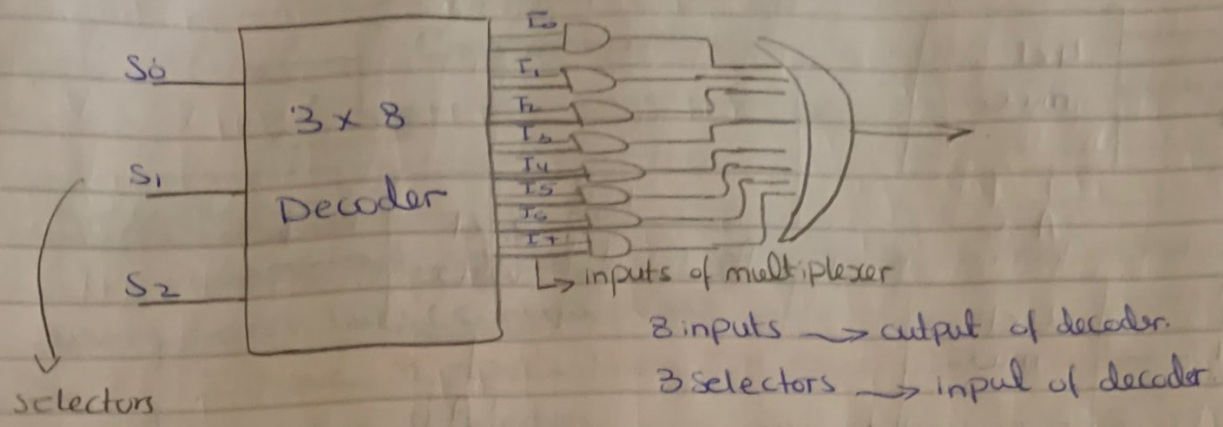 S0
S1
S2
selectors
3 x 8
Decoder
I0
I1
I2
I3
I4
I5
I6
I7
inputs of multiplexer
8 inputs → output of decoder.
3 selectors → input of decoder